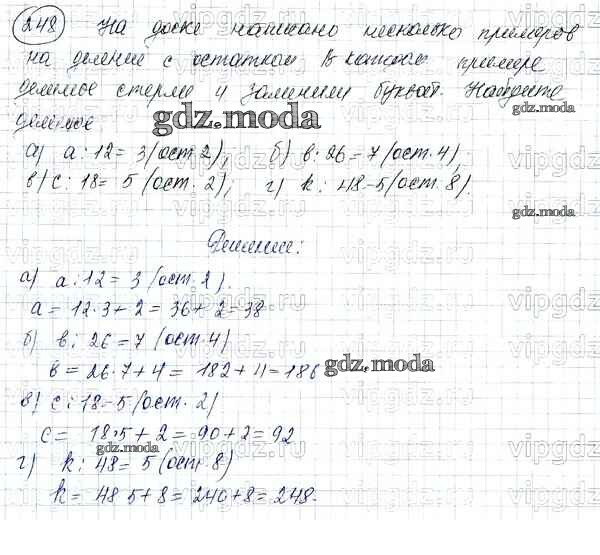 248 На доске написано несколько примеров
на деление с остатком В каждом примере
делимое стерли и заменили буквой. Найдите
делимое
gdz.moda
а) a : 12 = 3 (ост. 2), б) в : 26 = 7 (ост. 4),
в) c : 18 = 5 (ост. 2), г) k : 48 - 5 (ост. 8).
gdz.moda
а) a : 12 = 3 (ост. 2).
a = 12·3 + 2 = 36 + 2 = 38
б) в : 26 = 7 (ост. 4)
в = 26·7 + 4 = 182 + 4 = 186
gdz.moda
в) c : 18 - 5 (ост. 2)
c = 18·5 + 2 = 90 + 2 = 92
gdz.moda
г) k : 48 = 5 (ост. 8)
k = 48 5 + 8 = 240 + 8 = 248.
vipgdz.ru